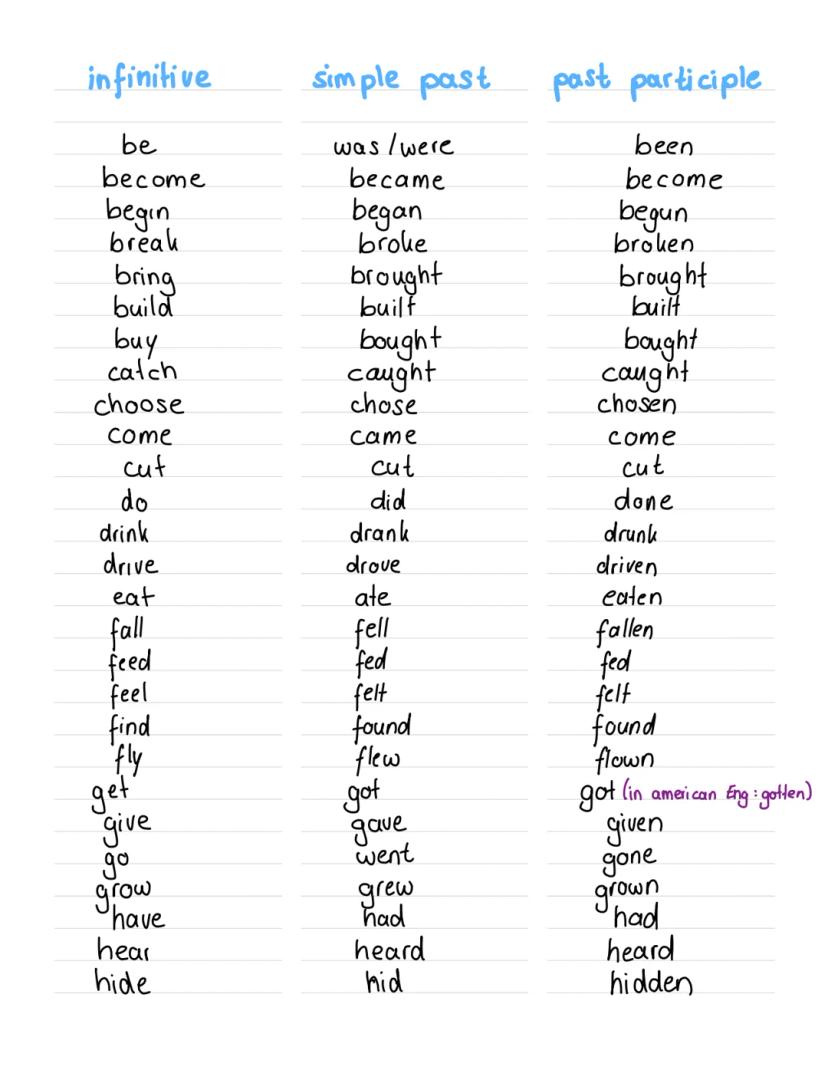 infinitive simple past past participle
be was/were been
become became become
begin began begun
break broke broken
bring brought brought
build built built
buy bought bought
catch caught caught
choose chose chosen
come came come
cut cut cut
do did done
drink drank drunk
drive drove driven
eat ate eaten
fall fell fallen
feed fed fed
feel felt felt
find found found
fly flew flown
get got got (in american Eng : gotten)
give gave given
go went gone
grow grew grown
have had had
hear heard heard
hide hid hidden